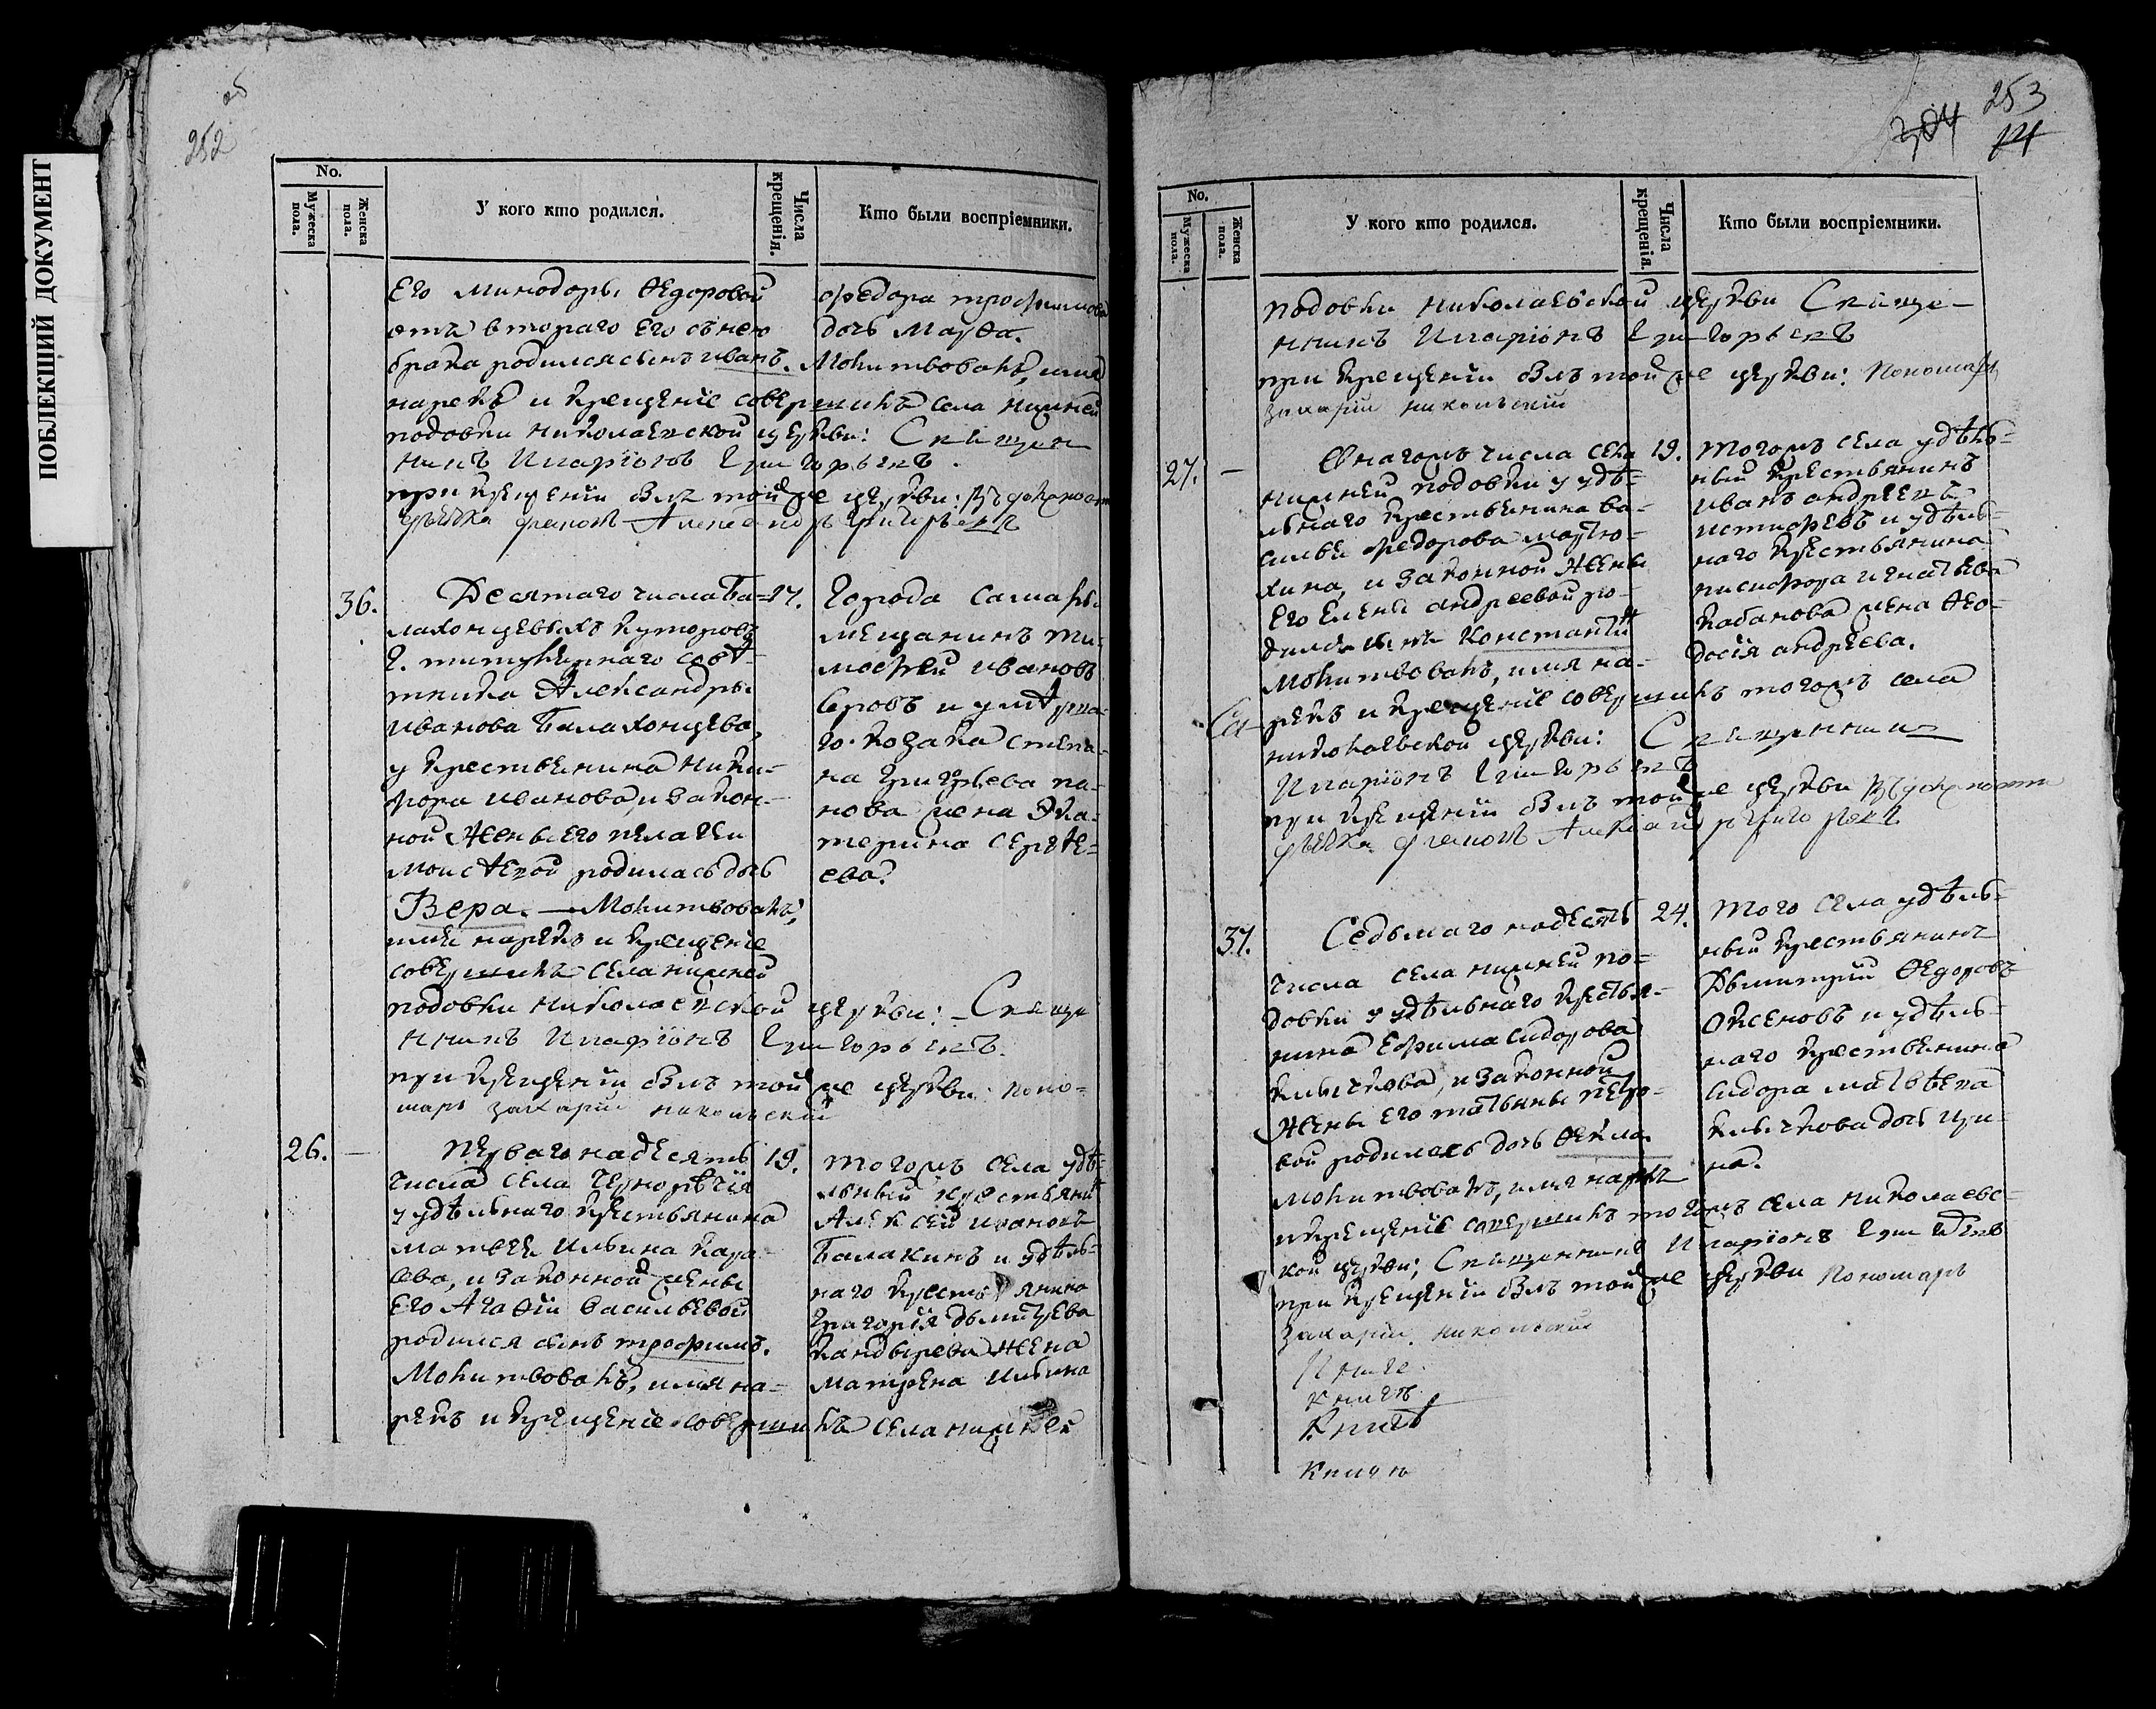 ПОБЛЕКШИЙ ДОКУМЕНТ
об
252
No.
Мужеска пола.
Женска пола.
У кого кто родился.
Числа крещенія.
Кто были воспріемники.
Его Минодоры Ѳедоровой
отъ втораго его съ нею
брака родился сынъ Иванъ.
Федора Трофимова
дочь Марѳа.
Молитвовалъ, имя
нарекъ и крещеніе совершилъ села нижней
подовки Николаевской церкви: Священ
никъ Иларіонъ Григорьевъ.
при крещеніи былъ той же церкви:
36.
Десятаго числа Ба=
17.
лахонцевыхъ хуторовъ
Г. титулярнаго совѣт=
ника Александры
Иванова Балахонцева,
у крестьянина Ники=
фора Иванова, и закон=
ной жены его Пелагеи
Моисѣевой родилась дочь
Вера. — Молитвовалъ,
имя нарекъ и крещеніе
совершилъ села нижней
подовки Николаевской церкви: Свяще
нникъ Иларіонъ Григорьевъ.
при крещеніи былъ той же церкви: поно=
марь Захарій Никольскій
Города Самары
мещанинъ Ти=
мофей Ивановъ
Серовъ и
го козака Степа=
на Григорьева па=
нова жена Ека=
терина Сергѣе=
ева.
26. —
Перваго надесять
19.
числа села Чернорѣчія
у удѣльнаго крестьянина
Матвея Ильина Кара
ева, и законной жены
Его Агаѳіи Васильевой
родился сынъ Трофимъ.
Молитвовалъ, имя на=
рекъ и крещеніе совершилъ села нижней
тогожъ села удѣ=
льный крестьянинъ
Алексей Ивановъ
Балакинъ и удѣль=
наго крестьянина
Григорія Дьмитрева
Кандырева жена
Матрена Ильина
304
253
14
No.
Мужеска пола.
Женска пола.
У кого кто родился.
Числа крещенія.
Кто были воспріемники.
подовки Николаевской церкви Свяще=
нникъ Иларіонъ Григорьевъ
при крещеніи былъ той же церкви: Пономарь
Захарій Никольскій
27. —
Онагожъ числа села
19.
нижней подовки у удѣ=
льнаго крестьянина Ва=
силья Федорова Матю=
хина, и законной жены
Его Елены Андреевой ро=
дился сынъ Константи
Молитвовалъ, имя на=
рекъ и крещеніе совершилъ тогожъ села
николаевской церкви: Священникъ
Иларіонъ Григорьевъ
при крещеніи былъ той же церкви
тогожъ села удѣль=
ный крестьянинъ
Иванъ Андреевъ
и удѣль=
наго крестьянина
Никифора Игнатьева
Кабанова жена Ѳео=
досія Андреева.
37.
Седьмаго надесять
24.
числа села нижней по=
довки у удѣльнаго крестья=
нина Ефима Сидорова
Клычкова, и законной
жены его Татьяны Петро=
вой родилась дочь Ѳекла.
Молитвовалъ, имя нарекъ
и крещеніе совершилъ тогожъ села николаевс=
кой церкви; Священникъ Иларіонъ
при крещеніи былъ той же церкви Пономарь
Захарій Никольскій
Того села удѣль=
ный крестьянинъ
Дьмитрий Ѳедоровъ
Оксеновъ и удѣль=
наго крестьянина
Сидора Матвѣева
Клычкова дочь Ири=
на.